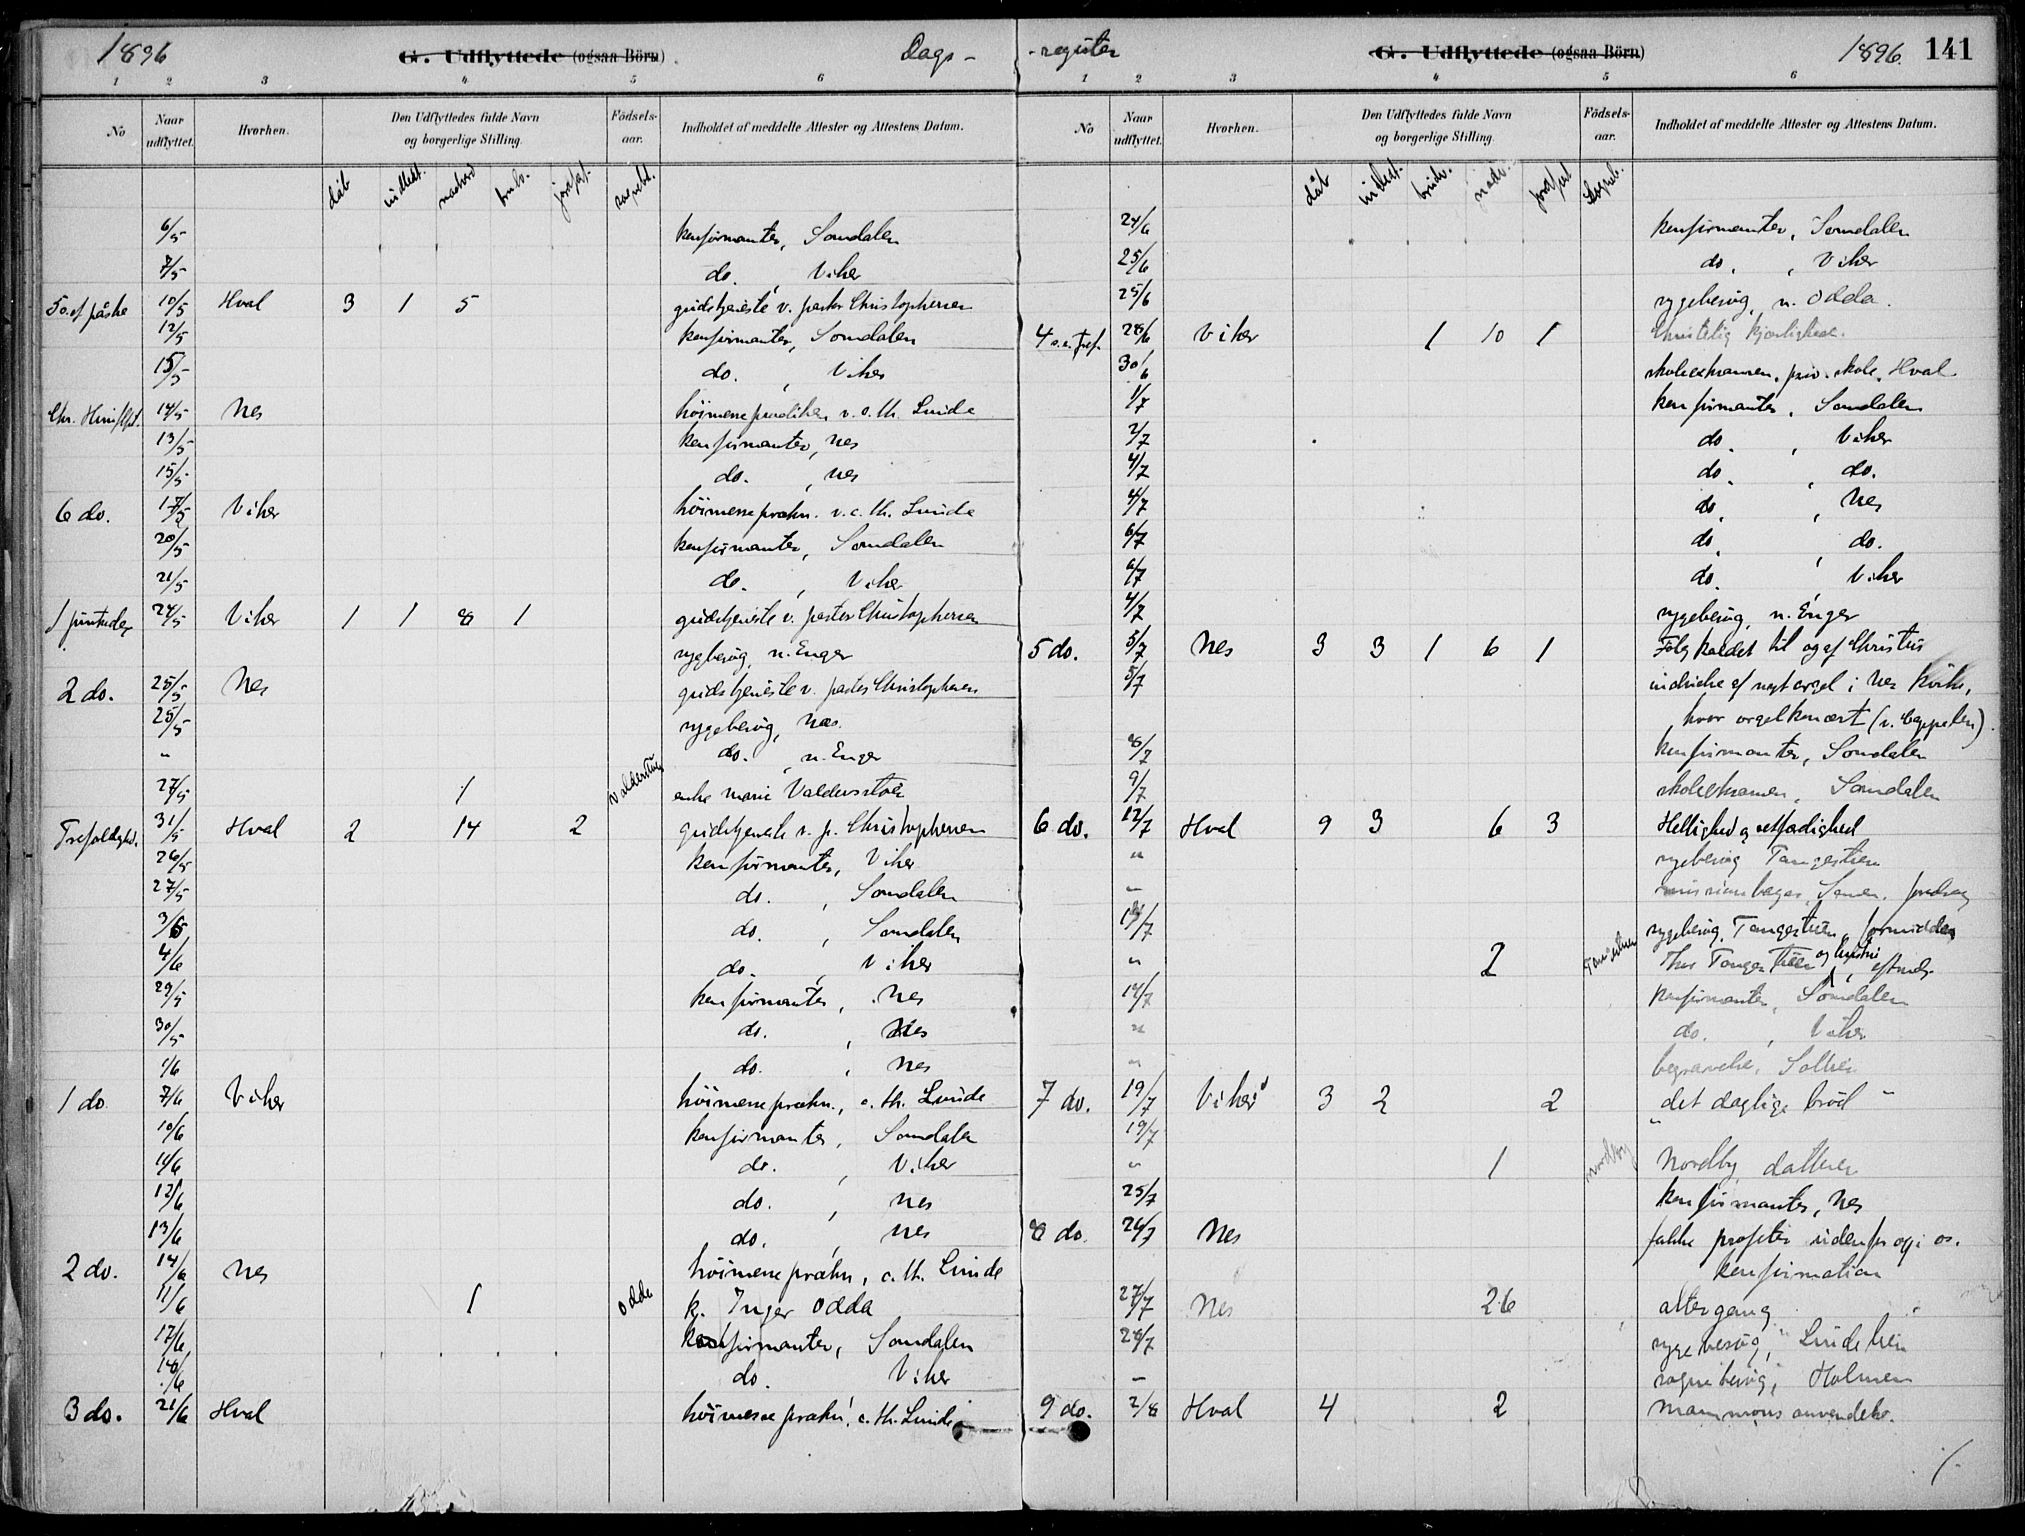 1896 G. Udflyttede (ogsaa Börn) Dags-
1 2 3 4 5 6
No Naar udflyttet. Hvorhen. Den Udflyttedes fulde Navn og borgerlige Stilling. Födsels-aar. Indholdet af meddelte Attester og Attestens Datum.
dåb nadverd
6/5 konfirmanter, Somdalen
7/5 do. , Viker
5 s. ef påske 10/5 Hval 3 1 5 gudstjeneste v. pastor Christophersen
12/5 konfirmanter, Somdalen
15/5 do. , Viker
Chr. Himlfst. 14/5 Nes höimesseprædiken v. c. th. Lunde
13/5 konfirmanter, Nes
15/5 do. , Nes
6 do. 17/5 Viker höimesseprækn. v. c. th. Lunde
20/5 konfirmanter, Somdalen
21/5 do. , Viker
1 pintsedag 24/5 Viker 1 1 8 1 gudstjeneste v. pastor Christophersen
sygebesög, n. Enger
2 do. 25/5 Nes gudstjeneste v. pastor Christophersen
25/5 sygebesög, Nes
" do. , n. Enger
27/5 1 enke Marie Valdersstöen
Trefoldighed. 31/5 Hval 2 14 2 gudstjeneste v. p. Christophersen
26/5 konfirmanter, Viker
27/5 do. , Somdalen
3/6 do. , Somdalen
4/6 do. , Viker
29/5 konfirmanter, Nes
30/5 do. , Nes
1/6 do. , Nes
1 do 7/6 Viker höimesseprækn., c. th. Lunde
10/6 konfirmanter, Somdalen
11/6 do. , Viker
12/6 do. , Nes
13/6 do. , Nes
2 do. 14/6 Nes höimesseprækn, c. th. Lunde
11/6 1 Odda k. Inger Odda
17/6 konfirmanter, Somdalen
18/6 do. Viker
3 do. 21/6 Hval höimesseprækn, c. th. Lunde
-register G. Udflyttede (ogsaa Börn) 1896. 141
1 2 3 4 5 6
No Naar udflyttet. Hvorhen. Den Udflyttedes fulde Navn og borgerlige Stilling. Födsels-aar. Indholdet af meddelte Attester og Attestens Datum.
dåb
24/6 konfirmanter, Somdalen
25/6 do. , Viker
25/6 sygebesög, n. Odda.
4 s. e. tref. 28/6 Viker 1 10 1 Christelig kjærlighed.
30/6 skoleeksamen, priv. skole, Hval
1/7 konfirmanter, Somdalen
2/7 do. , Viker
4/7 do. , do.
4/7 do. , Nes
6/7 do. , do.
6/7 do. , Viker
4/7 sygebesög, n. Enger
5 do. 5/7 Nes 3 3 1 6 1 Fölg kaldet til og af Christus
5/7 indvielse af nyt orgel i Nes kirke,
hvor orgelkoncert (v. Cappelen).
8/7 konfirmanter, Somdalen
9/7 skoleeksamen, Somdalen
6 do. 12/7 Hval 9 3 6 3 Hellighed og retfærdighed
" sygebesög Tangestuen
"
13/7 sygebesög, Tangestuen, formiddag
" 2
14/7 konfirmanter, Somdalen
" do. , Viker
" begravelse, Solheim
7 do. 19/7 Viker 3 2 2 "det daglige bröd"
19/7 "
" 1 Nordby Nordby datteren
25/7 konfirmanter, Nes
8 do. 26/7 Nes falske profeter udenfor og i os.
konfirmation
27/7 Nes 26 altergang
28/7 sygebesög, Lindeheim
" sognebesög, Holmen
9 do. 2/8 Hval 4 2 Mammons anvendelse.